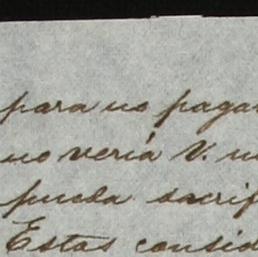 para no paga
no vería V. u
pueda sacrif
Estas consid